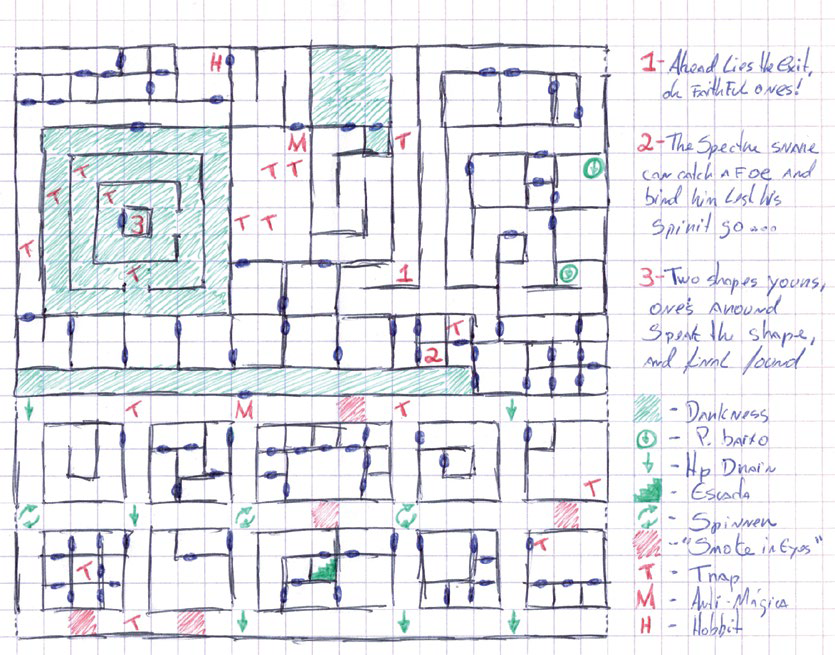 H
M
T
T T
T
T
T
T
3
T T
T
T
1
T
2
T
M
T
T
T
T
T
1-Ahead Lies the Exit,
oh Faithful ones!
2-The Spectre snare
can catch a Foe and
bind him lest his
Spirit go...
3-Two shapes yours,
one's around
Speak the shape,
and final found
- Darkness
- P. baixo
- Hp Drain
- Escada
- Spinner
- "Smoke in Eyes"
T - Trap
M - Anti-Mágica
H - Hobbit